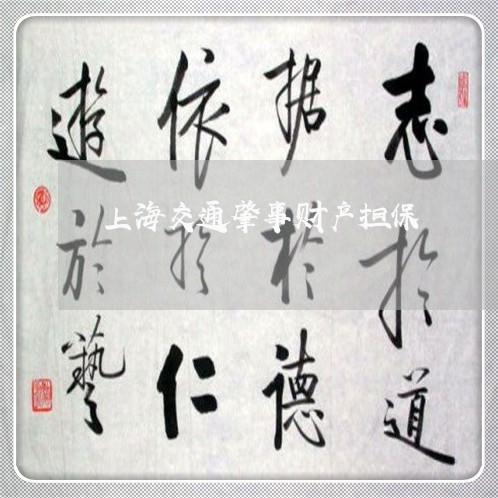 志於道
据於德
依於仁
遊於藝
上海交通肇事财产担保